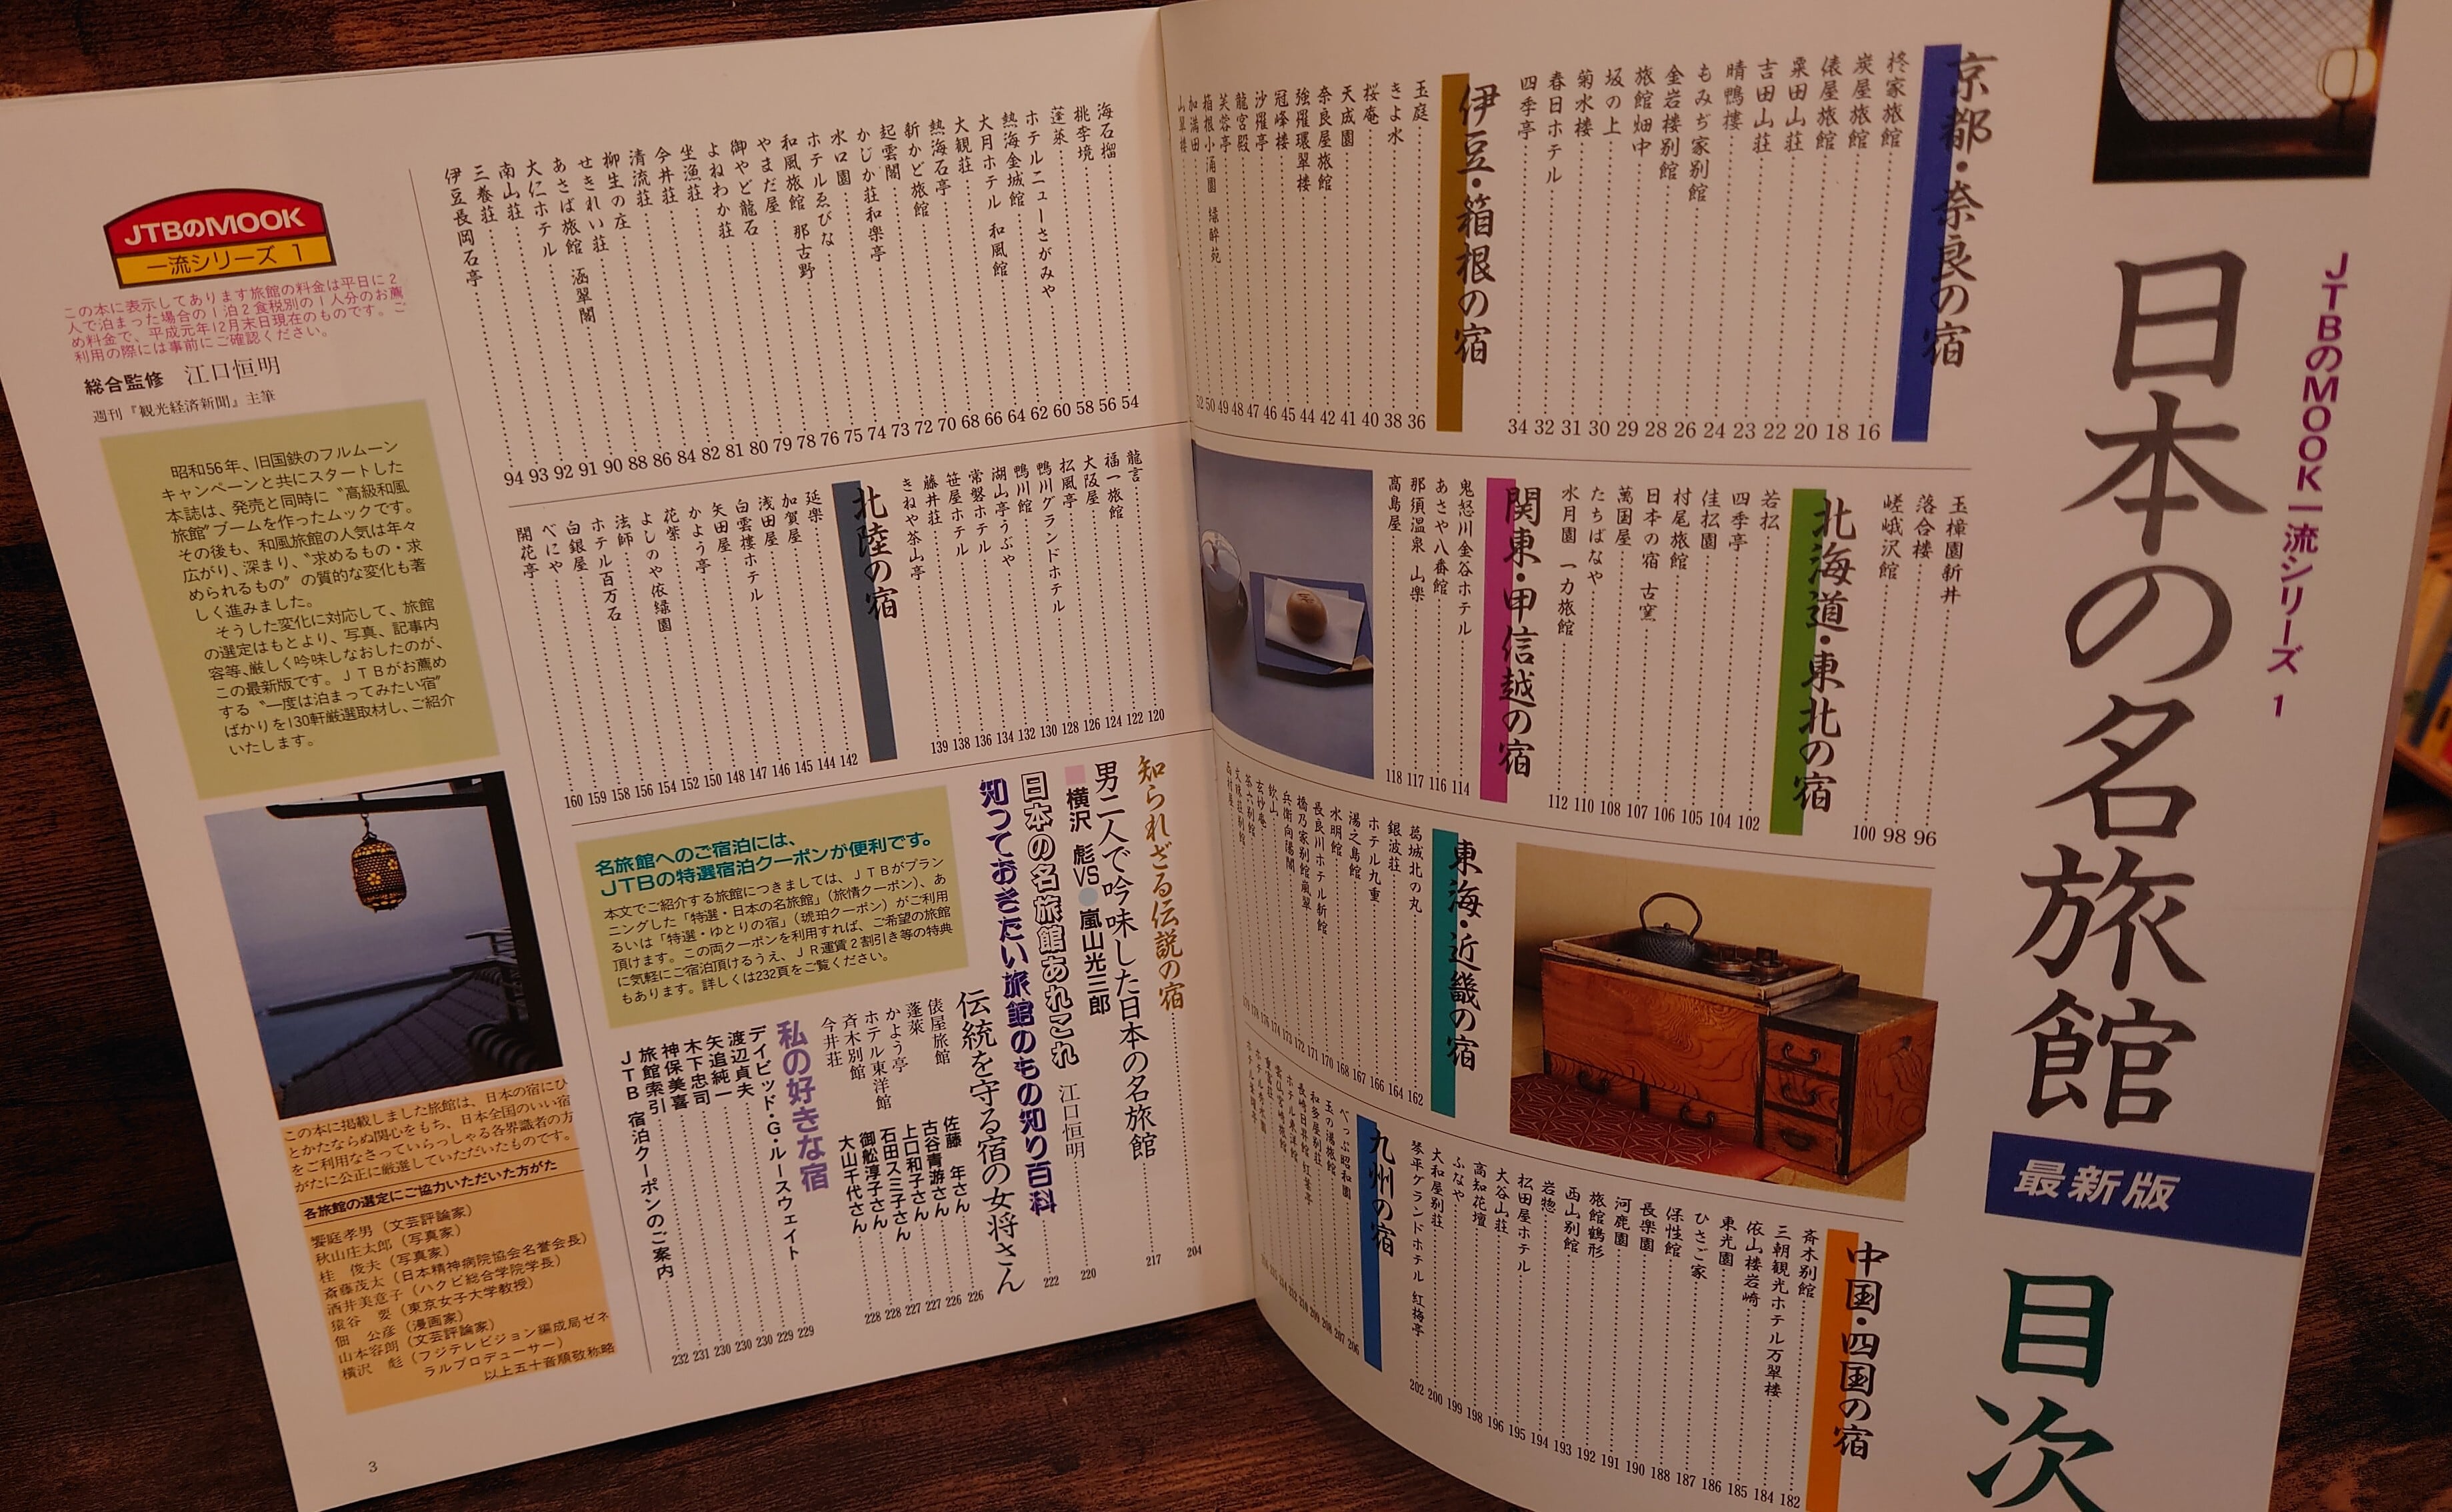 JTBのMOOK一流シリーズ 1
日本の名旅館
最新版
目次
京都・奈良の宿
柊家旅館 16
炭屋旅館 18
俵屋旅館 20
粟田山荘 22
吉田山荘 23
晴鴨樓 24
もみぢ家別館 26
金岩楼別館 28
旅館畑中 29
坂の上 30
菊水楼 31
春日ホテル 32
四季亭 34
伊豆・箱根の宿
玉庭 36
きよ水 38
桜庵 40
天成園 41
奈良屋旅館 42
強羅環翠楼 44
冠峰楼 45
沙羅亭 46
龍宮殿 47
芙蓉亭 48
箱根小涌園 緑酔苑 49
加満田 50
山翠楼 52
海石榴 54
桃李境 56
蓬莱 58
ホテルニューさがみや 60
熱海金城館 62
大月ホテル 和風館 64
大観荘 66
熱海石亭 68
新かど旅館 70
起雲閣 72
かじか荘和楽亭 73
水口園 74
ホテルゑびな 75
和風旅館 那古野 76
やまだ屋 78
御やど龍石 79
よねわか荘 80
坐漁荘 81
今井荘 82
清流荘 84
柳生の庄 86
せきれい荘 88
あさば旅館 涵翠閣 90
大仁ホテル 91
南山荘 92
三養荘 93
伊豆長岡石亭 94
玉樟園新井 96
落合楼 98
嵯峨沢館 100
北海道・東北の宿
若松 102
四季亭 104
佳松園 105
村尾旅館 106
日本の宿 古窯 107
萬国屋 108
たちばなや 110
水月園 一力旅館 112
関東・甲信越の宿
鬼怒川金谷ホテル 114
あさや八番館 116
那須温泉 山楽 117
高島屋 118
龍言 120
福一旅館 122
大阪屋 124
松風亭 126
鴨川グランドホテル 128
鴨川館 130
湖山亭うぶや 132
常磐ホテル 134
笹屋ホテル 136
藤井荘 138
きねや茶山亭 139
北陸の宿
延楽 142
加賀屋 144
浅田屋 145
白雲楼ホテル 146
矢田屋 147
かよう亭 148
花紫 150
よしのや依緑園 152
法師 154
ホテル百万石 156
白銀屋 158
べにや 159
開花亭 160
東海・近畿の宿
葛城北の丸 162
銀波荘 164
ホテル九重 166
湯之島館 167
水明館 168
長良川ホテル新館 170
橘乃家別館嵐翠 171
兵衛向陽閣 172
欽山 173
中国・四国の宿
斉木別館 182
三朝観光ホテル万翠楼 184
依山楼岩崎 185
東光園 186
ひさご家 187
保性館 188
長楽園 190
河鹿園 191
旅館鶴形 192
西山別館 193
岩惣 194
松田屋ホテル 195
大谷山荘 196
高知花壇 198
ふなや 199
大和屋別荘 200
琴平グランドホテル 紅梅亭 202
九州の宿
べっぷ昭和園 206
玉の湯旅館 207
和多屋別荘 208
長崎日昇館 紅葉亭
ホテル東洋館
雲仙宮崎旅館
知られざる伝説の宿 204
男二人で吟味した日本の名旅館 217
横沢 彪VS嵐山光三郎
日本の名旅館あれこれ 江口恒明 220
知っておきたい旅館のもの知り百科 222
伝統を守る宿の女将さん
俵屋旅館 佐藤 年さん 226
蓬莱 古谷青游さん 226
かよう亭 上口和子さん 227
ホテル東洋館 石田スミ子さん 227
斉木別館 御舩淳子さん 228
今井荘 大山千代さん 228
私の好きな宿
デイビッド・G・ルースウェイト 229
渡辺貞夫 229
矢追純一 230
木下忠司 230
神保美喜 230
旅館索引 231
JTB 宿泊クーポンのご案内 232
名旅館へのご宿泊には、
JTBの特選宿泊クーポンが便利です。
本文でご紹介する旅館につきましては、JTBがプラン
ニングした「特選・日本の名旅館」(旅情クーポン)、あ
るいは「特選・ゆとりの宿」(琥珀クーポン)がご利用
頂けます。この両クーポンを利用すれば、ご希望の旅館
に気軽にご宿泊頂けるうえ、JR運賃2割引き等の特典
もあります。詳しくは232頁をご覧ください。
JTBのMOOK
一流シリーズ 1
この本に表示してあります旅館の料金は平日に2
人で泊まった場合の1泊2食税別の1人分のお薦
め料金で、平成元年12月末日現在のものです。ご
利用の際には事前にご確認ください。
総合監修 江口恒明
週刊『観光経済新聞』主筆
昭和56年、旧国鉄のフルムーン
キャンペーンと共にスタートした
本誌は、発売と同時に〝高級和風
旅館〟ブームを作ったムックです。
その後も、和風旅館の人気は年々
広がり、深まり、〝求めるもの・求
められるもの〟の質的な変化も著
しく進みました。
そうした変化に対応して、旅館
の選定はもとより、写真、記事内
容等、厳しく吟味しなおしたのが、
この最新版です。JTBがお薦め
する〝一度は泊まってみたい宿〟
ばかりを130軒厳選取材し、ご紹介
いたします。
この本に掲載しました旅館は、日本の宿にひ
とかたならぬ関心をもち、日本全国のいい宿
をご利用なさっていらっしゃる各界識者の方
がたに公正に厳選していただいたものです。
各旅館の選定にご協力いただいた方がた
饗庭孝男(文芸評論家)
秋山庄太郎(写真家)
桂 俊夫(写真家)
斎藤茂太(日本精神病院協会名誉会長)
酒井美意子(ハクビ総合学院学長)
猿谷 要(東京女子大学教授)
佃 公彦(漫画家)
山本容朗(文芸評論家)
横沢 彪(フジテレビジョン編成局ゼネ
ラルプロデューサー)
以上五十音順敬称略
3